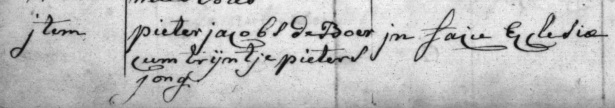 jtem pieter jacobs de Boer jn facie Ecclesiæ
cum trijntje pieters
jong